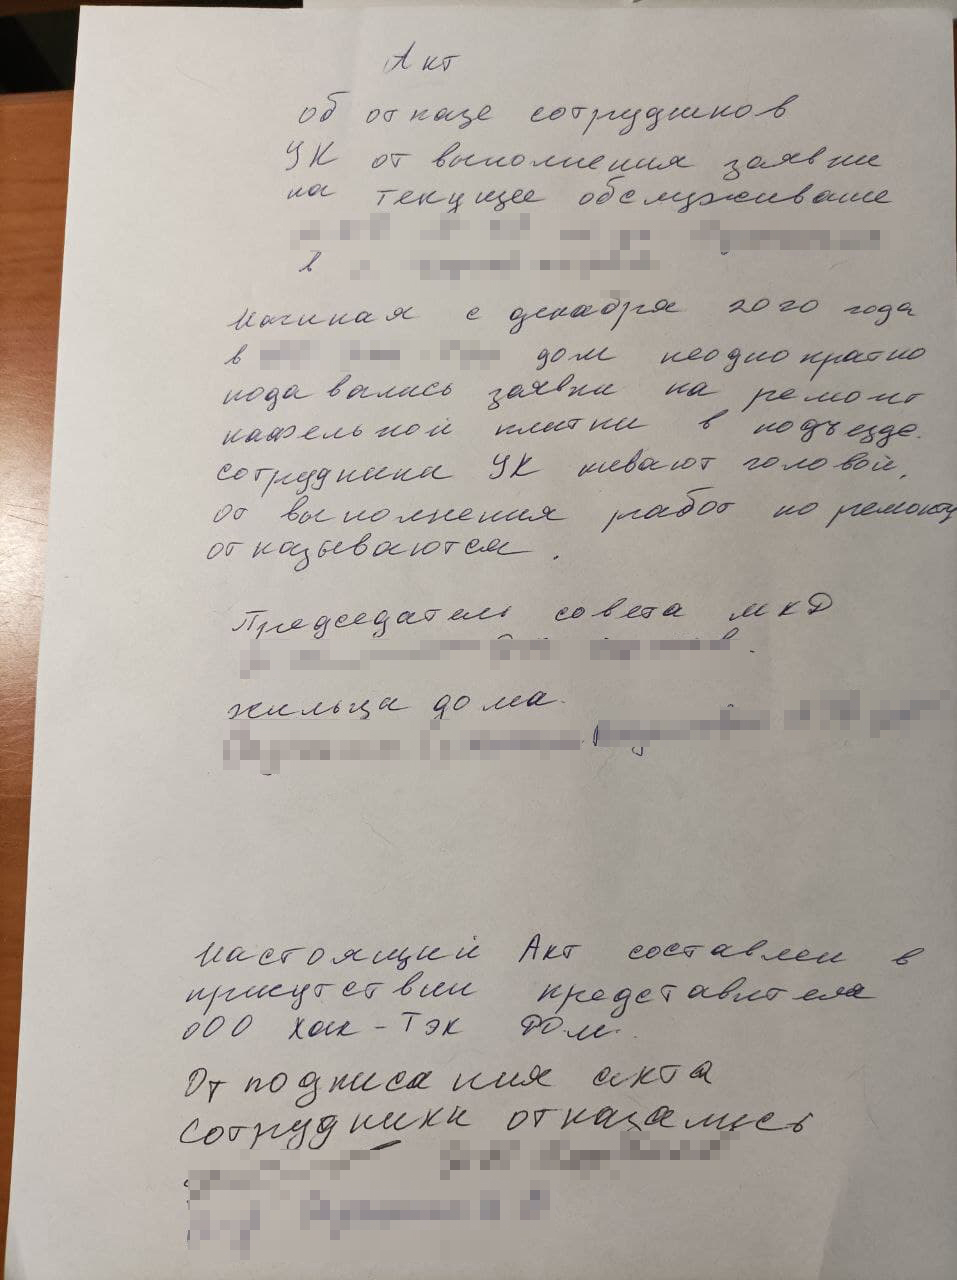 Акт
об отказе сотрудников
УК от выполнения заявки
на текущее обслуживание
в
Начиная с декабря 2020 года
в дом неоднократно
подавались заявки на ремонт
кафельной плитки в подъезде.
сотрудники УК кивают головой,
от выполнения работ по ремонту
отказываются.
Председатель совета МКД
жильца дома.
Настоящий Акт составлен в
присутствии представителя
ООО Хак-Тэк Дом.
От подписания акта
сотрудники отказались